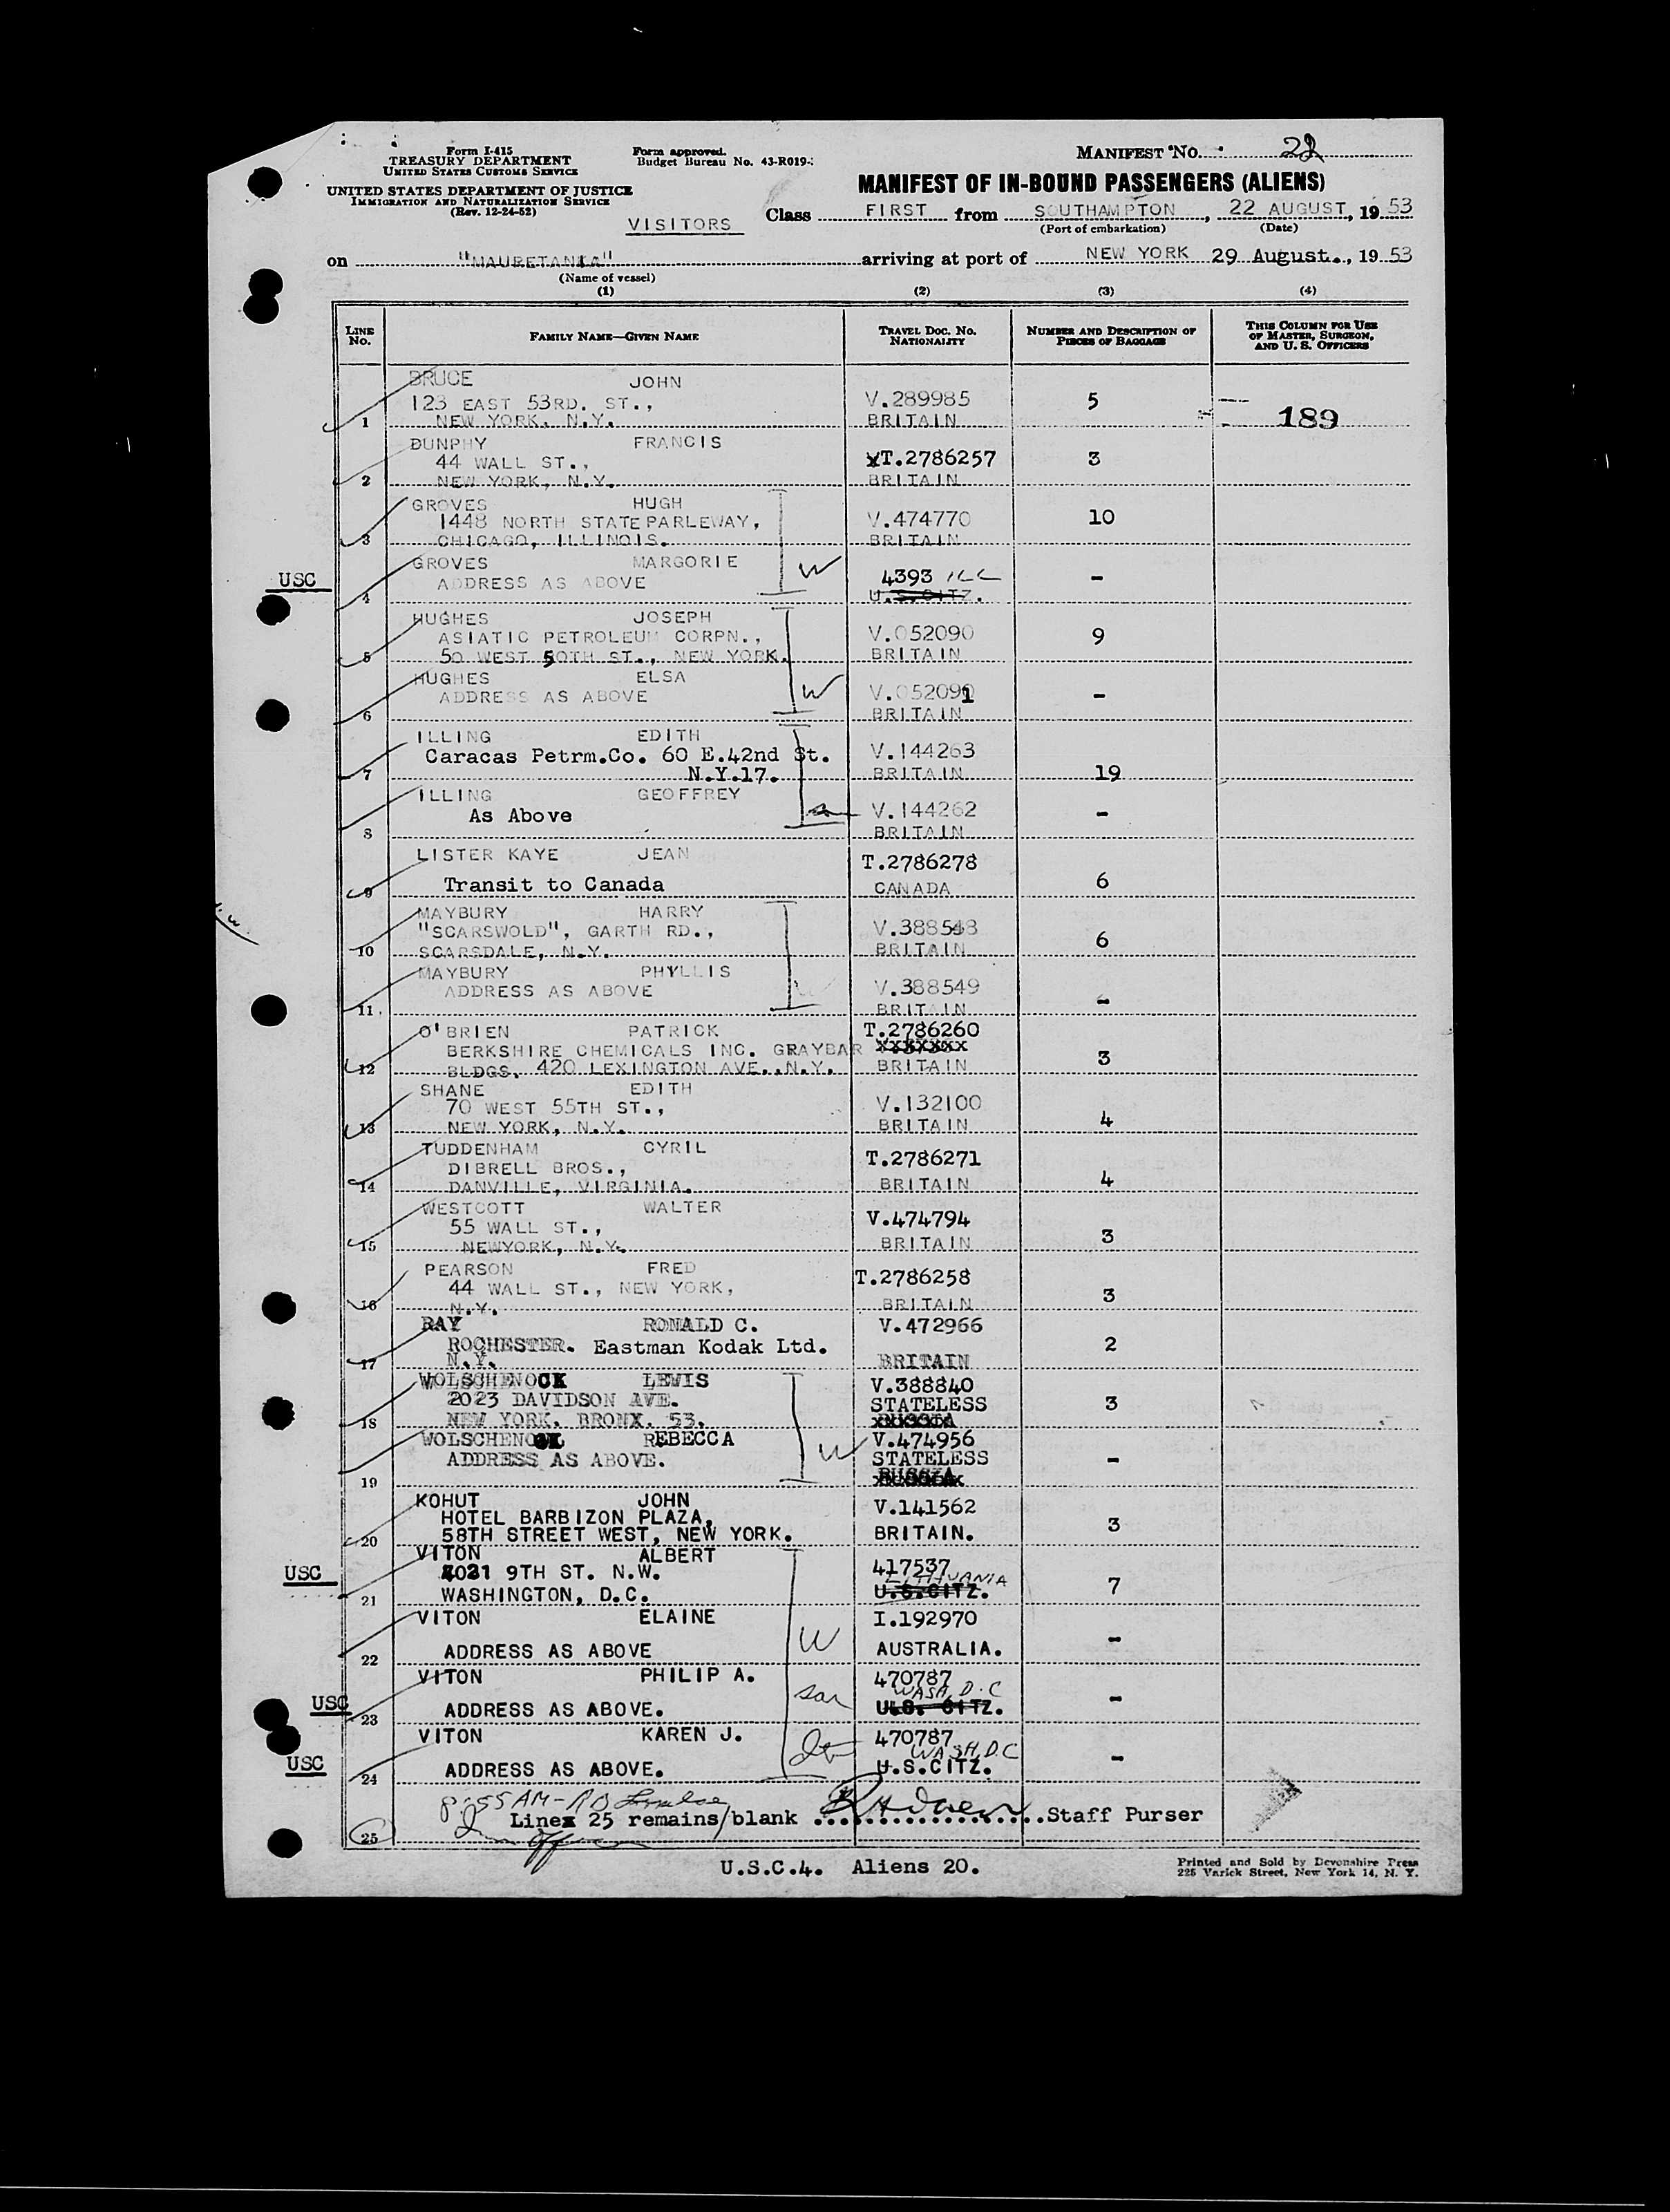 Form I-415
TREASURY DEPARTMENT
UNITED STATES CUSTOMS SERVICE
UNITED STATES DEPARTMENT OF JUSTICE
IMMIGRATION AND NATURALIZATION SERVICE
(Rev. 12-24-52)
Form approved.
Budget Bureau No. 43-R019-
MANIFEST No. 22
MANIFEST OF IN-BOUND PASSENGERS (ALIENS)
VISITORS
Class FIRST from SOUTHAMPTON, 22 AUGUST, 1953
(Port of embarkation) (Date)
on "MAURETANIA" arriving at port of NEW YORK 29 August., 1953
(Name of vessel)
(1) (2) (3) (4)
LINE No. FAMILY NAME—GIVEN NAME TRAVEL DOC. No. NATIONALITY NUMBER AND DESCRIPTION OF PIECES OF BAGGAGE THIS COLUMN FOR USE OF MASTER, SURGEON, AND U. S. OFFICERS
BRUCE JOHN
123 EAST 53RD. ST., V.289985 5 189
1 NEW YORK, N.Y. BRITAIN
DUNPHY FRANCIS
44 WALL ST., T.2786257 3
2 NEW YORK, N.Y. BRITAIN
GROVES HUGH
1448 NORTH STATE PARLEWAY, V.474770 10
3 CHICAGO, ILLINOIS. BRITAIN
GROVES MARGORIE
USC ADDRESS AS ABOVE W 4393 ILL -
4 U.S.CITZ.
HUGHES JOSEPH
ASIATIC PETROLEUM CORPN., V.052090 9
5 50 WEST 50TH ST., NEW YORK. BRITAIN
HUGHES ELSA
ADDRESS AS ABOVE W V.052091 -
6 BRITAIN
ILLING EDITH
Caracas Petrm.Co. 60 E.42nd St. V.144263
7 N.Y.17. BRITAIN 19
ILLING GEOFFREY
As Above V.144262 -
8 BRITAIN
LISTER KAYE JEAN T.2786278
9 Transit to Canada CANADA 6
MAYBURY HARRY
"SCARSWOLD", GARTH RD., V.388548 6
10 SCARSDALE, N.Y. BRITAIN
MAYBURY PHYLLIS
ADDRESS AS ABOVE W V.388549 -
11 BRITAIN
O'BRIEN PATRICK T.2786260
BERKSHIRE CHEMICALS INC. GRAYBAR xxxxxxx 3
12 BLDGS. 420 LEXINGTON AVE., N.Y. BRITAIN
SHANE EDITH
70 WEST 55TH ST., V.132100 4
13 NEW YORK, N.Y. BRITAIN
TUDDENHAM CYRIL
DIBRELL BROS., T.2786271 4
14 DANVILLE, VIRGINIA. BRITAIN
WESTCOTT WALTER
55 WALL ST., V.474794 3
15 NEWYORK, N.Y. BRITAIN
PEARSON FRED
44 WALL ST., NEW YORK, T.2786258 3
16 N.Y. BRITAIN
RAY RONALD C. V.472966
ROCHESTER. Eastman Kodak Ltd. 2
17 N.Y. BRITAIN
WOLSCHENOCK LEWIS V.388840
2023 DAVIDSON AVE. STATELESS 3
18 NEW YORK, BRONX. 53.
WOLSCHENOCK REBECCA V.474956
ADDRESS AS ABOVE. W STATELESS -
19 RUSSIA
KOHUT JOHN V.141562
HOTEL BARBIZON PLAZA, 3
20 58TH STREET WEST, NEW YORK. BRITAIN.
VITON ALBERT
USC 4021 9TH ST. N.W. 417537 LITHUANIA 7
21 WASHINGTON, D.C. U.S.CITZ.
VITON ELAINE I.192970
22 ADDRESS AS ABOVE W AUSTRALIA. -
VITON PHILIP A. 470787
USC son WASH, D.C -
23 ADDRESS AS ABOVE. U.S. CITZ.
VITON KAREN J. 470787
USC dtr WASH, D.C -
24 ADDRESS AS ABOVE. U.S.CITZ.
8:55 AM-
25 Line 25 remains/blank ..................Staff Purser
U.S.C.4. Aliens 20.
Printed and Sold by Devonshire Press
225 Varick Street, New York 14, N. Y.